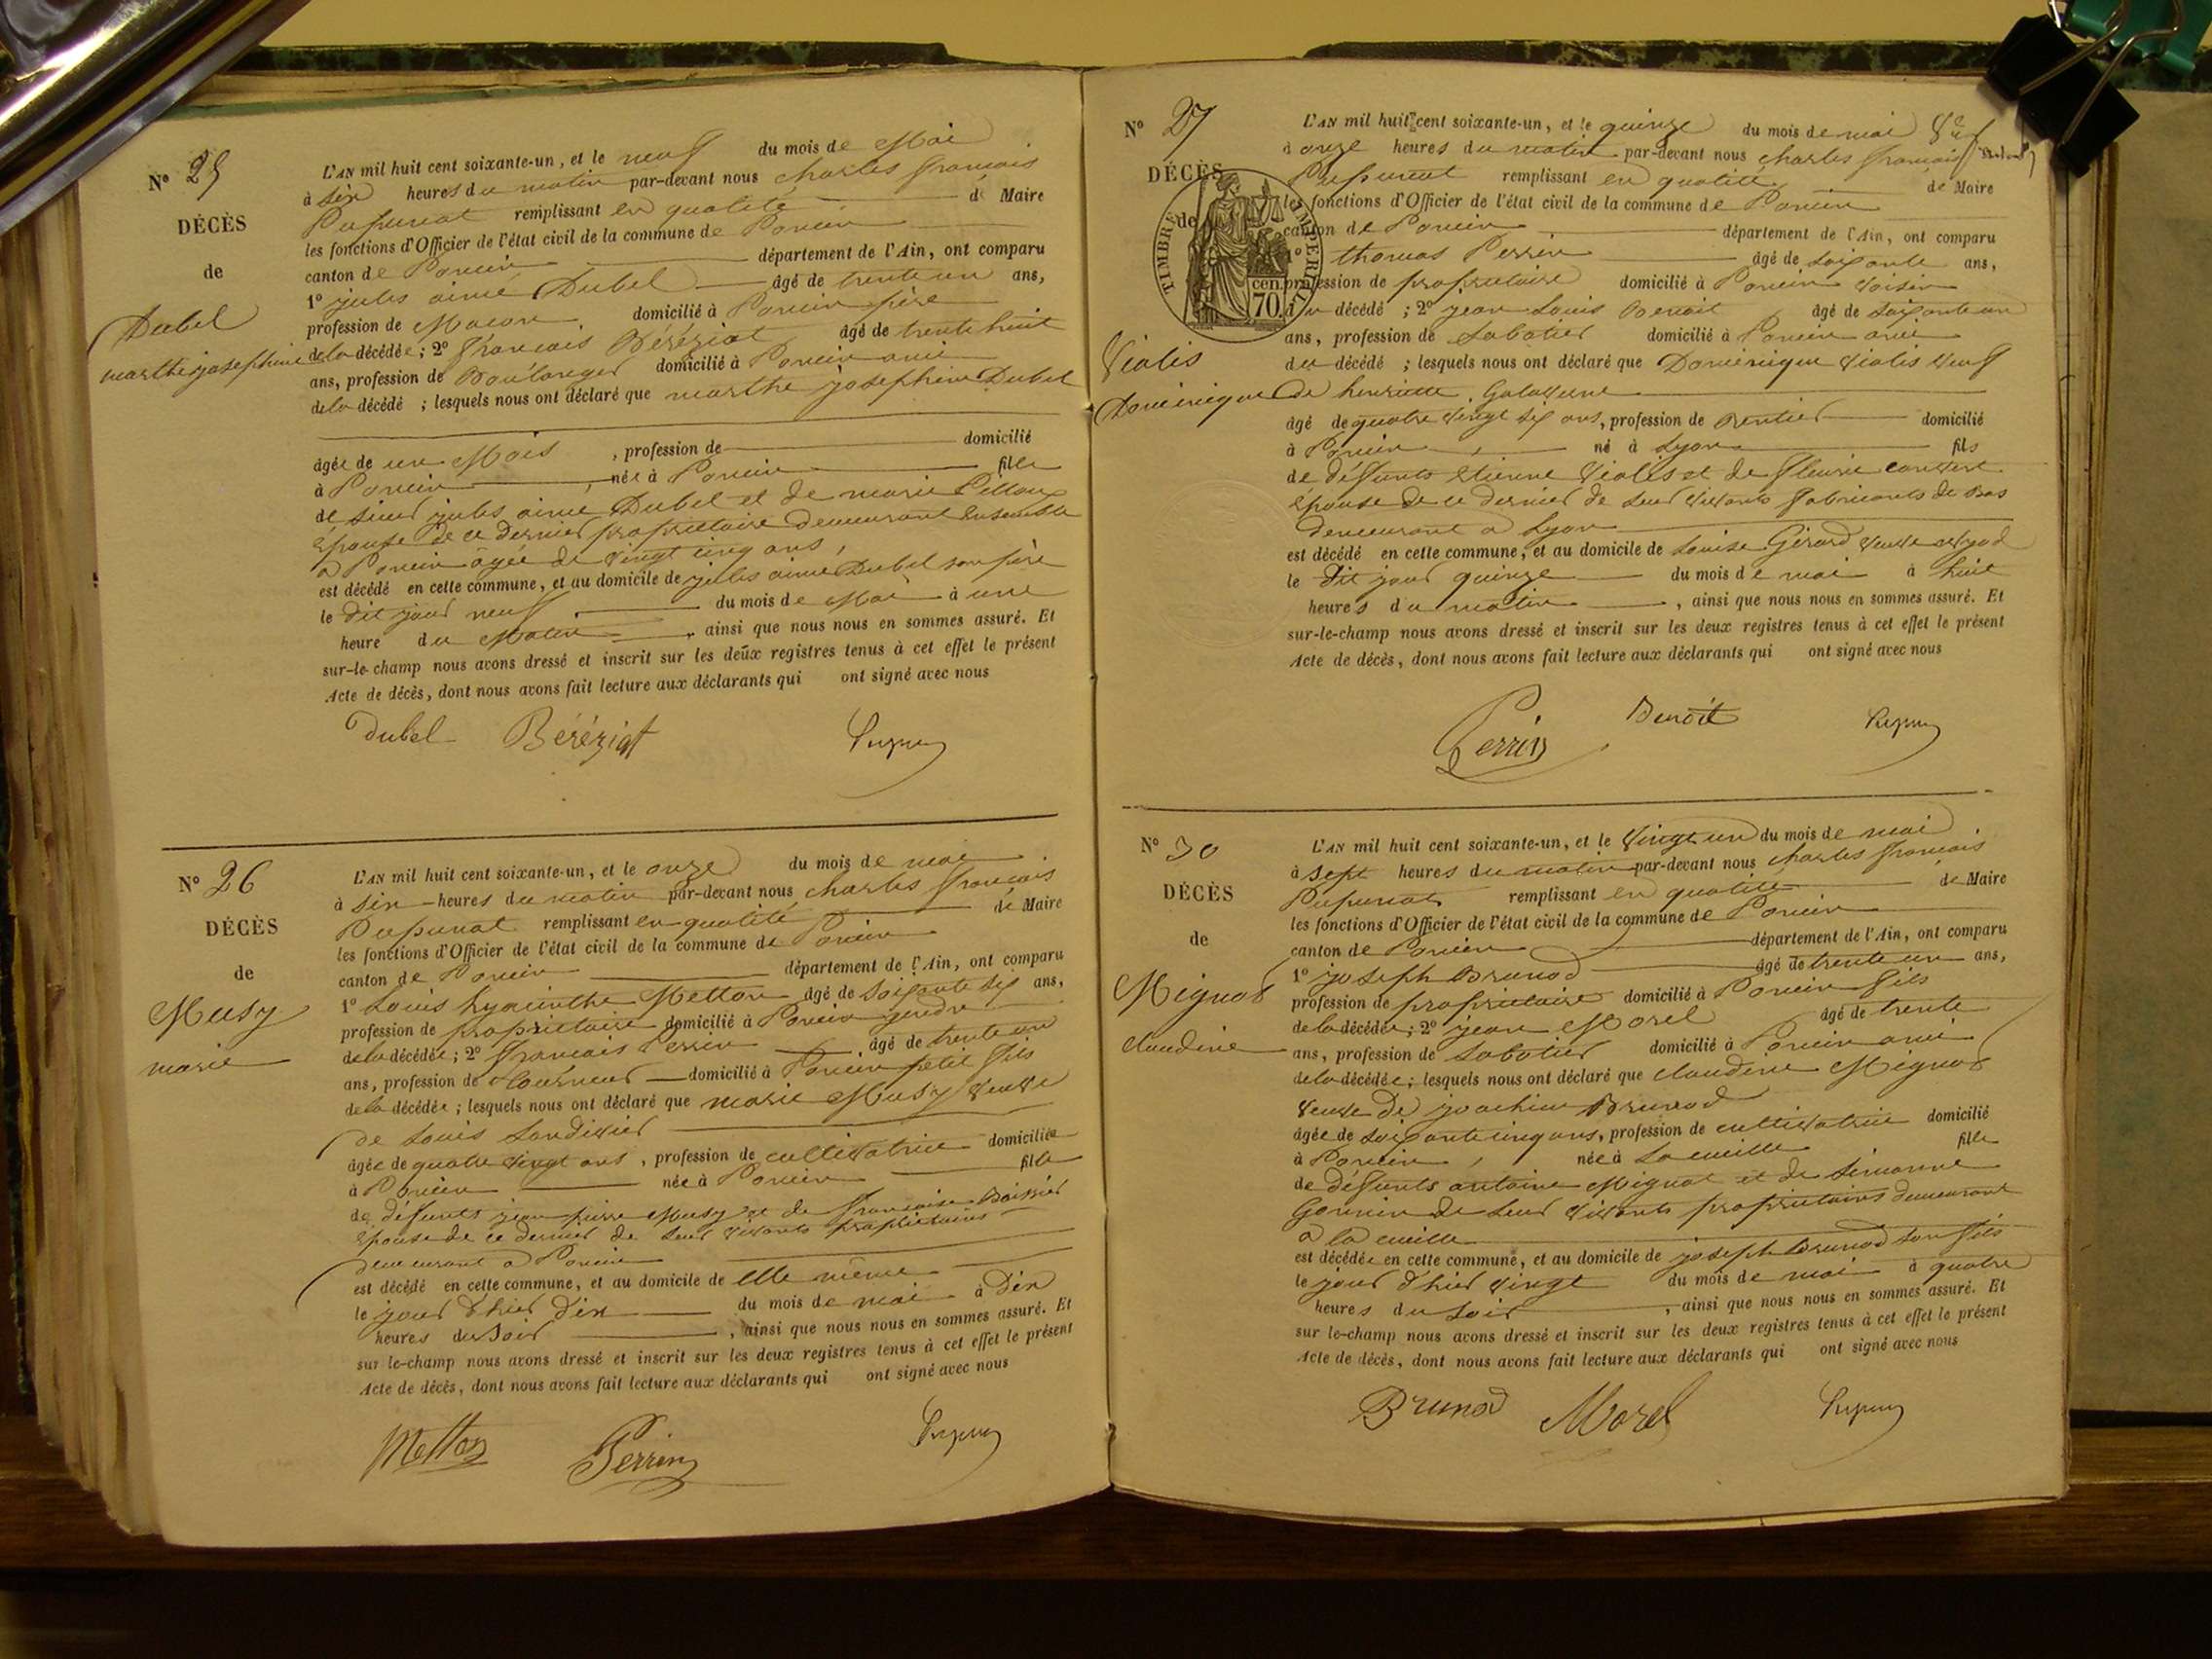 Nº 25
DÉCÈS
de
Dubel
marthe josephine
L'AN mil huit cent soixante-un, et le neuf du mois de Mai
à six heures du matin par-devant nous charles françois
Pupunat remplissant en qualité de Maire
les fonctions d'Officier de l'état civil de la commune de Poncin
canton de Poncin département de l'Ain, ont comparu
1º jules aimé Dubel âgé de trente un ans,
profession de Macon domicilié à Poncin père
de la décédée; 2º françois Béréziat âgé de trente huit
ans, profession de Boulanger domicilié à Poncin ami
de la décédé ; lesquels nous ont déclaré que marthe josephine Dubel
âgée de un Mois , profession de domicilié
à Poncin , née à Poncin fille
de sieur jules aimé Dubel et de marie
épouse de ce dernier propriétaire demeurant ensemble
a Poncin âgée de vingt cinq ans,
est décédé en cette commune, et au domicile de jules aimé Dubel son père
le dit jour neuf du mois de Mai à une
heure du Matin , ainsi que nous nous en sommes assuré. Et
sur-le-champ nous avons dressé et inscrit sur les deux registres tenus à cet effet le présent
Acte de décès, dont nous avons fait lecture aux déclarants qui ont signé avec nous
Dubel Béréziat
Nº 26
DÉCÈS
de
Musy
marie
L'AN mil huit cent soixante-un, et le onze du mois de mai
à six heures du matin par-devant nous charles françois
Pupunat remplissant en qualité de Maire
les fonctions d'Officier de l'état civil de la commune de Poncin
canton de Poncin département de l'Ain, ont comparu
1º Louis hyacinthe Metton âgé de soixante six ans,
profession de propriétaire domicilié à Poncin gendre
de la décédée; 2º françois Perrin âgé de trente un
ans, profession de tourneur domicilié à Poncin petit fils
de la décédée ; lesquels nous ont déclaré que marie Musy veuve
de Louis
âgée de quatre vingt ans , profession de cultivatrice domiciliée
à Poncin née à Poncin fille
de défunts jean pierre Musy et de françoise
épouse de ce dernier de leur vivants propriétaires
demeurant a Poncin
est décédé en cette commune, et au domicile de elle même
le jour d'hier dix du mois de mai à dix
heures du soir , ainsi que nous nous en sommes assuré. Et
sur le-champ nous avons dressé et inscrit sur les deux registres tenus à cet effet le présent
Acte de décès, dont nous avons fait lecture aux déclarants qui ont signé avec nous
Metton Perrin
Nº 27
DÉCÈS
de
TIMBRE IMPERIAL
70 cen.
Vialis
Dominique
L'AN mil huit cent soixante-un, et le quinze du mois de mai
à onze heures du matin par-devant nous charles françois
Pupunat remplissant en qualité de Maire
les fonctions d'Officier de l'état civil de la commune de Poncin
canton de Poncin département de l'Ain, ont comparu
1º thomas Perrin âgé de soixante ans,
profession de propriétaire domicilié à Poncin voisin
du décédé ; 2º jean Louis Benoit âgé de soixante un
ans, profession de Sabotier domicilié à Poncin ami
du décédé ; lesquels nous ont déclaré que Dominique Vialis veuf
de henriette
âgé de quatre vingt six ans, profession de Rentier domicilié
à Poncin , né à Lyon fils
de défunts Etienne Vialis et de fleurie
épouse de ce dernier de leur vivants fabricants de Bas
demeurant a Lyon
est décédé en cette commune, et au domicile de Louise Girard veuve
le dit jour quinze du mois de mai à huit
heures du matin , ainsi que nous nous en sommes assuré. Et
sur-le-champ nous avons dressé et inscrit sur les deux registres tenus à cet effet le présent
Acte de décès, dont nous avons fait lecture aux déclarants qui ont signé avec nous
Perrin Benoit
Nº 30
DÉCÈS
de
Mignot
claudine
L'AN mil huit cent soixante-un, et le vingt un du mois de mai
à sept heures du matin par-devant nous charles françois
Pupunat remplissant en qualité de Maire
les fonctions d'Officier de l'état civil de la commune de Poncin
canton de Poncin département de l'Ain, ont comparu
1º joseph Brunod âgé de trente un ans,
profession de propriétaire domicilié à Poncin fils
de la décédée; 2º jean Morel âgé de trente
ans, profession de Sabotier domicilié à Poncin ami
de la décédée; lesquels nous ont déclaré que claudine Mignot
veuve de joachim Brunod
âgée de soixante cinq ans, profession de cultivatrice domicilié
à Poncin , née à La cueille fille
de défunts antoine Mignot et de Simonne
de leur vivants propriétaires demeurant
a la cueille
est décédée en cette commune, et au domicile de joseph Brunod son fils
le jour d'hier vingt du mois de mai à quatre
heures du soir , ainsi que nous nous en sommes assuré. Et
sur le-champ nous avons dressé et inscrit sur les deux registres tenus à cet effet le présent
Acte de décès, dont nous avons fait lecture aux déclarants qui ont signé avec nous
Brunod Morel